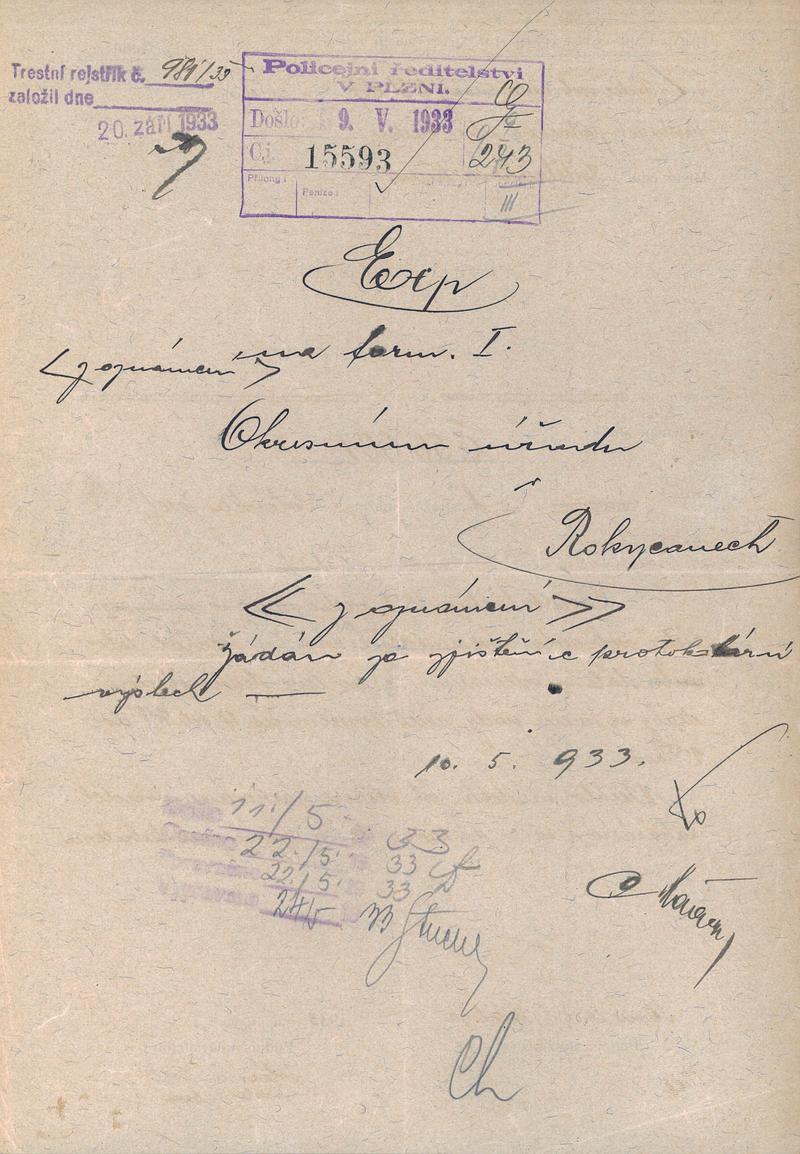 Trestní rejstřík č. 981/33
založil dne
20. září 1933
Policejní ředitelství
V PLZNI.
Došlo: 9. V. 1933
Čj. 15593
243
Příloh:
Peníze:
III
Exp
na form. I.
< z oznámení >
Okresnímu úřadu
v
Rokycanech
<< z oznámení >>
žádám za zjištění a protokolární
výslech
10. 5. 933.
Došlo 11/5 33
22/5 33
22/5 33
Vypraveno 24/5 33
Ch